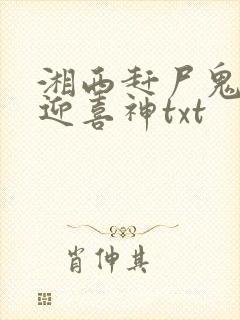 湘西赶尸鬼
迎喜神txt
肖仲其